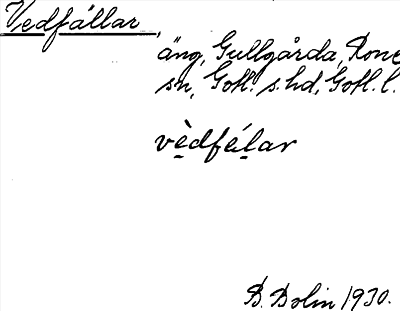 Vedfállar,
äng, Gullgårda, Rone
sn, Gotl. s. hd, Gotl. l.
vèdfélar
B. Bolin 1930.